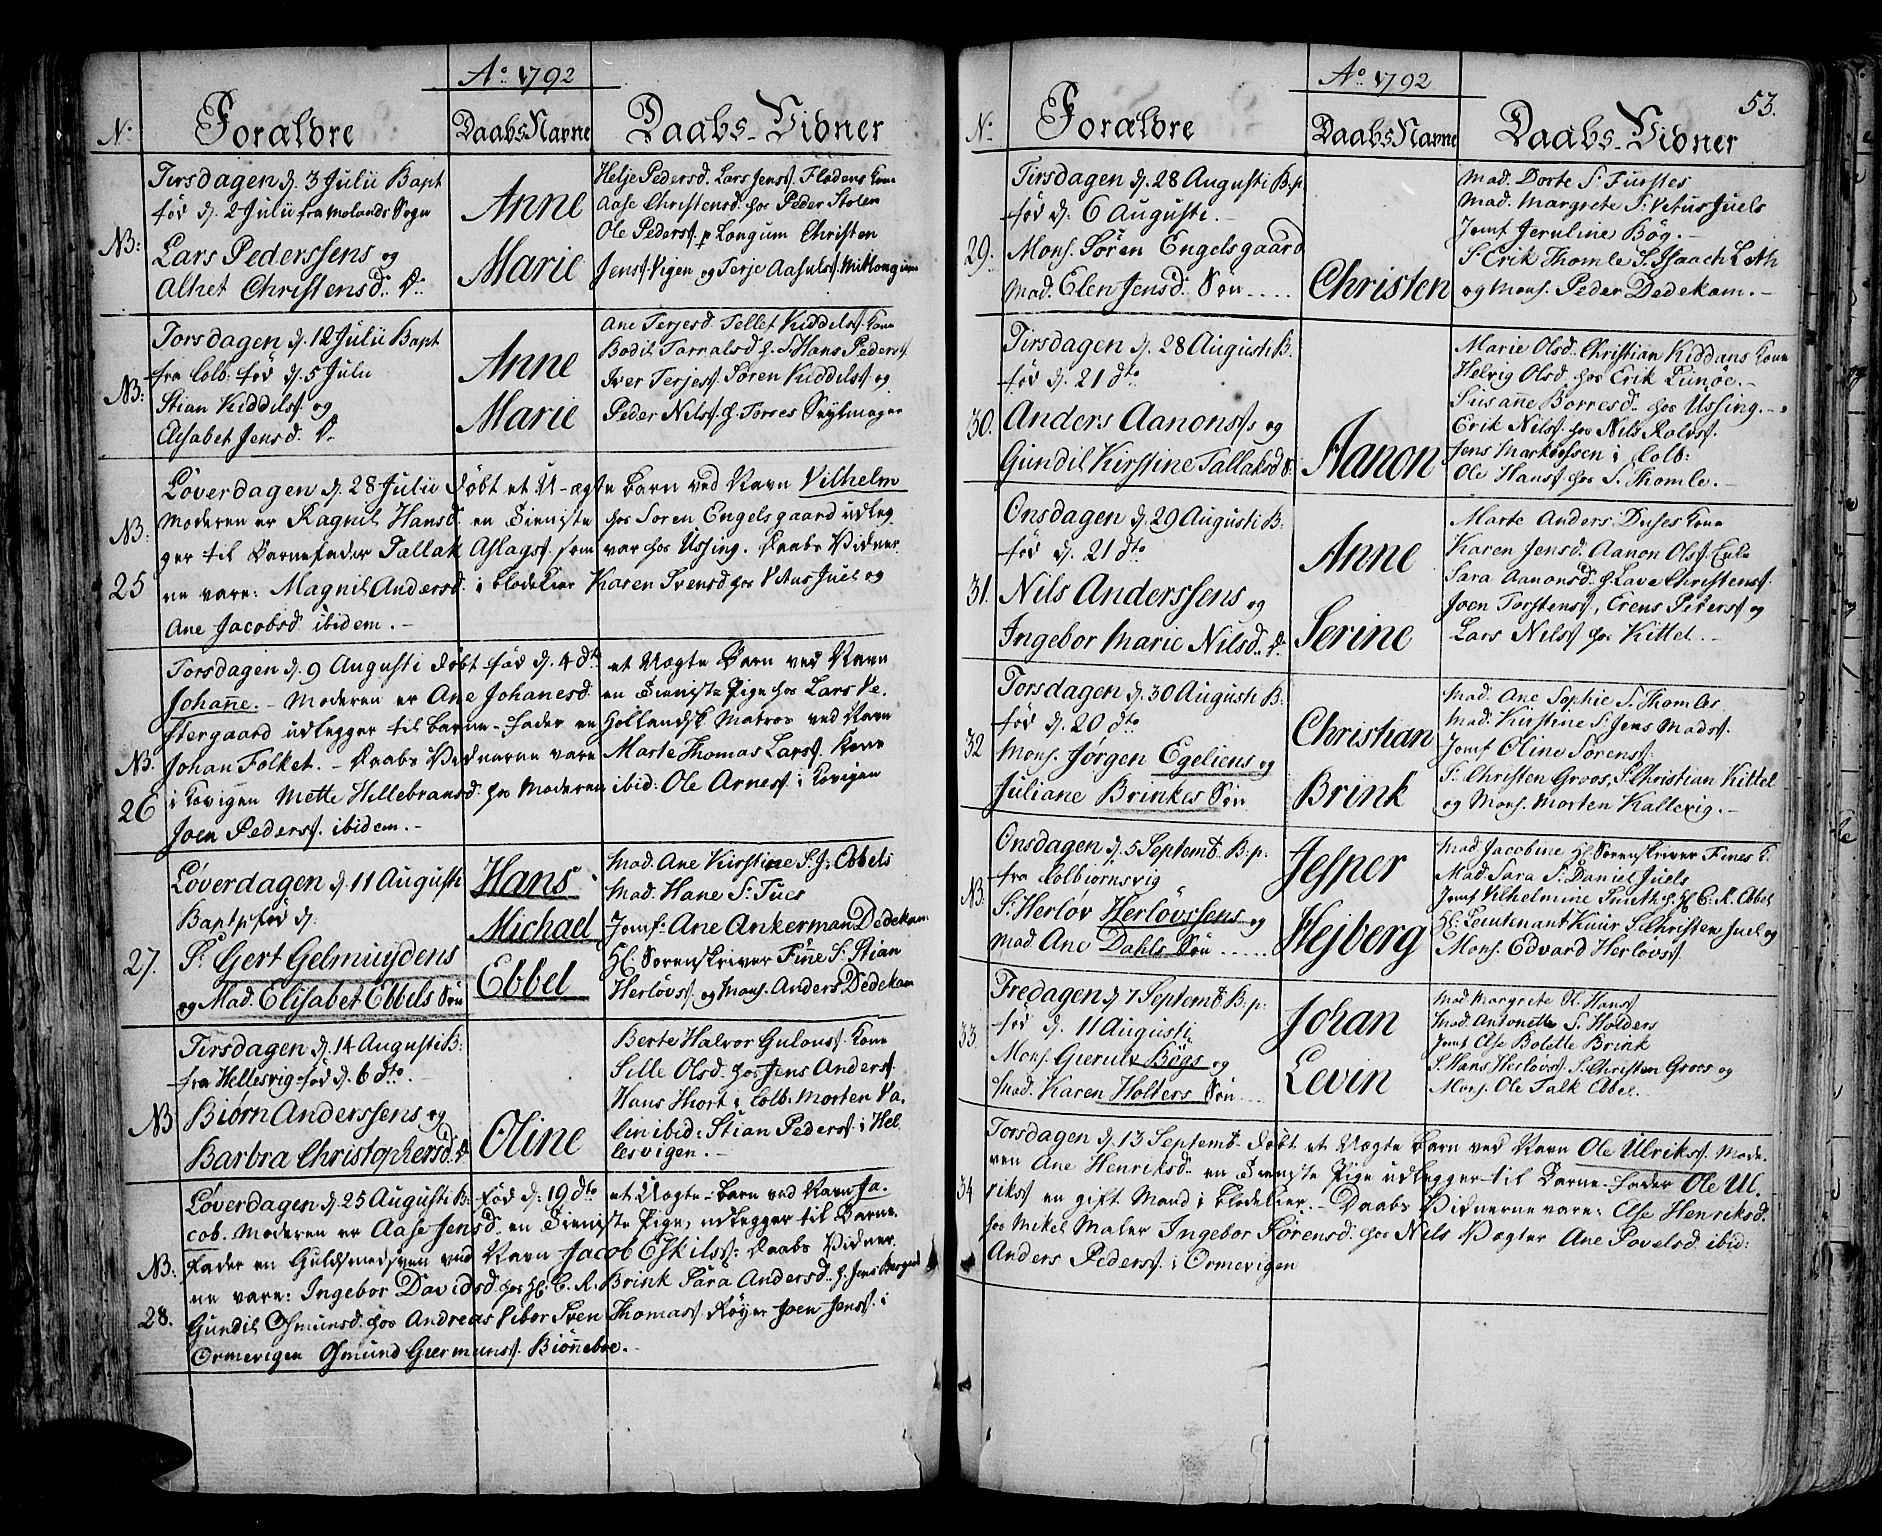 Ao 1792
No Forældre Daabs Navne Daabs-Vidner
Tirsdagen d. 3 Julii Bapt
fød d. 2 Julii fra Molands Sogn
NB:
Lars Pederssens og
Alhet Christensd. D.
Anne
Marie
Helje Pedersd. Lars Jensf. Flodens Kone
Aase Christensd. hos Peder Stolen
Ole Pedersf. p Longum Christen
Jensf. Vigen og Terje Aasulsf. Mit Longum
Torsdagen d. 12 Julii Bapt
fra Colb. fød d. 5 Julii
NB:
Stian Kiddilsf. og
Elisabet Jensd. D.
Anne
Marie
Ane Terjesd. Tellef Kiddilsf. Kone
Bodil Tarralsd h. S. Hans Pedersf.
Iver Terjesf. Søren Kiddilsf. og
Peder Nilsf. h. Torres Seylmager
Løverdagen d. 28 Julii døbt et U-ægte Barn ved Navn Vilhelm
Moderen er Ragnil Hansd. en Tieniste hos Søren Engelsgaard udleg
NB:
ger til Barnefader Tallak Aslagsf. som var hos Ussing. Daabs Vidner
25
ne vare: Magnil Andersd. i Blodekier Karen Svensd hos Vitus Juel og
Ane Jacobsd ibidem.
Torsdagen d. 9 Augusti døbt fød d. 4 dto et Uægte Barn ved Navn
Johanne. Moderen er Ane Johanesd. en Tieniste Pige hos Lars Ve-
stergaard udlegger til Barne-fader en Hollandsk Matros ved Navn
NB.
Johan Folket. - Daabs Vidnerne vare Marte Thomas Larsf. Kone
26
i Kovigen Mette Hillebransd. hos Moderen ibid: Ole Arnesf. i Kovigen
Joen Pedersf. ibidem.
Løverdagen d. 11 Augusti
Bapt p fød d:
27.
Sr. Gert Gelmuydens
og Mad. Elisabet Ebbels Søn
Hans
Michael
Ebbel
Mad. Ane Kirstine S. J. Ebbels
Mad. Hane S. Tues
Jomf. Ane Ankerman Dedekam
Hl. Sorenskriver Fine S. Stian
Herløvs. og Mons. Anders Dedekam
Tirsdagen d. 14 Augusti B:
fra Hellesvig fød d. 6 dto.
NB
Biørn Anderssens og
Barbra Christophersd. D
Oline
Berte Halvor Gulousf. Kone
Sille Olsd. hos Jens Andersf.
Hans Hiort i Colb. Morten Pa-
lin ibid: Stian Pedersf. i Hel-
lesvigen.
Løverdagen d. 25 Augusti B. fød d: 19 dto et Uægte Barn ved Navn Ja-
cob. Moderen er Aase Jensd. en Tieniste Pige, udlegger til Barne
NB:
Fader en Guldsmedsven ved Navn Jacob Eskilsf: Daabs Vidner
ne vare: Ingebor Davidsd hos Hl. C. R. Brink Sara Andersd. h. Jens Bergend
28.
Gundil Osmunsd. hos Andreas Vibor Sven Thomasf. Røyer Joen Jensf. i
Ormevigen Osmund Giermunsf. Biønnebøe.
53.
Ao 1792
No Forældre Daabs Navne Daabs-Vidner
Tirsdagen d. 28 Augusti B:p.
fød d: 6 Augusti.
29.
Mons. Søren Engelsgaard
Mad. Elen Jensd. Søn
Christen
Mad. Dorte S. Furstes
Mad. Margrete S. Vitus Juels
Jomf Jeruline Bøg.
S. Erik Thomle S. Isaach Leth
og Mons. Peder Dedekam.
Tirsdagen d. 28 Augusti B.
fød d. 21 dto
30.
Anders Aanonsf. og
Gundil Kirstine Tallaksd S.
Aanon
Marie Olsd. Christian Kiddans Kone
Helvig Olsd. hos Erik Tunøe.
Susanne Børresd. hos Ussing.
Erik Nilsf. hos Nils Rolvsf.
Jens Markussen i Colb:
Ole Hansf hos S. Thomle.
Onsdagen d. 29 Augusti B:
fød d. 21 dto
31.
Nils Anderssens og
Ingebor Marie Nilsd. D.
Anne
Serine
Marte Anders Duses Kone
Karen Jensd. Aanon Olsf.
Sara Aanonsd. h. Lave Christensf.
Joen Torstensf, Erens Pedersf og
Lars Nilsf hos Kittel.
Torsdagen d. 30 Augusti B.
fød d. 20 dto
32
Mons. Jørgen Egeliens og
Juliane Brinkes Søn
Christian
Brink
Mad. Ane Sophie S. Thomles
Mad. Kirstine S. Jens Madsf.
Jomf Oline Sørensf.
Sr. Christen Groos, S. Christian Kittel
og Mons. Morten Kallevig.
Onsdagen d. 5 Septemb. B:p:
fra Colbiørnsvig
NB.
S. Herløv Herløvssens og
Mad. Ane Dahls Søn
Jesper
Hejberg
Mad Jacobine Hl. Sorenskriver Fines K.
Mad Sara S. Daniel Juels
Jomf Vilhelmine Smith h. Hl. C. R. Ebbel
Hl. Lieutenant Kuur S. Christen Juel og
Mons. Edvard Herløvsf.
Fredagen d. 7 Septemb B:p:
fød d. 11 Augusti
33.
Mons. Gierulv Bøgs og
Mad. Karen Holters Søn
Johan
Levin
Mad Margrete Ol. Hansf
Mad. Antonette S. Holders
Jomf Else Bolette Brink
S. Hans Herløvsf. S. Christen Groos og
Mons. Ole Falk Ebel.
Torsdagen d. 13 Septemb. døbt et Uægte Barn ved Navn Ole Ulriksf. Mode-
ren Ane Henriksd. en Tieniste Pige udlegger til Barne-fader Ole Ul-
34
riksf en gift Mand i Blodekier. - Daabs Vidnerne vare: Else Henriksd.
hos Mikel Maler Ingebor Sørensd. hos Nils Vægter Ane Povelsd. ibid:
Anders Pedersf. i Ormevigen